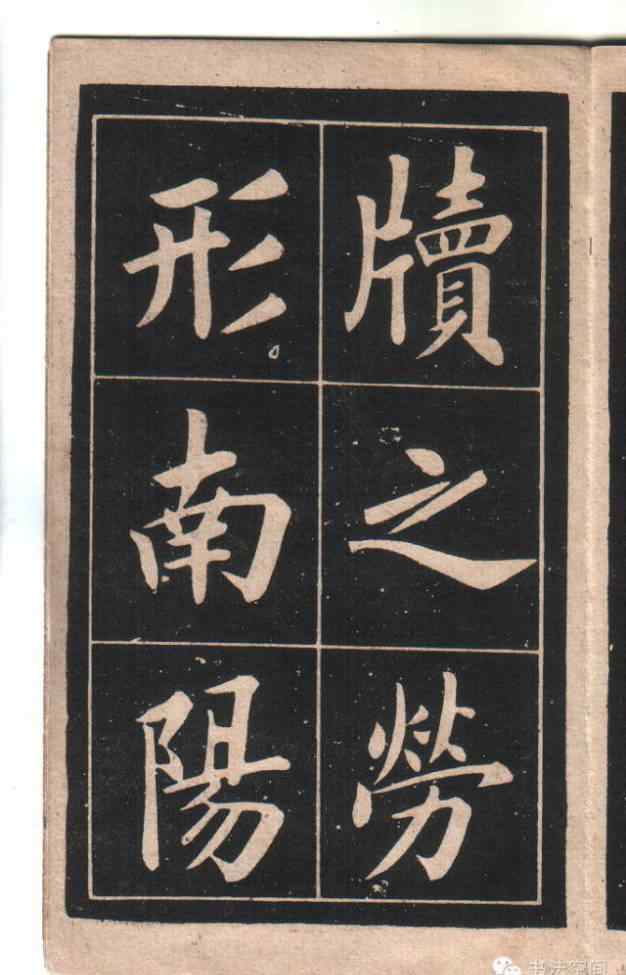 牘之勞
形南陽
书法空间